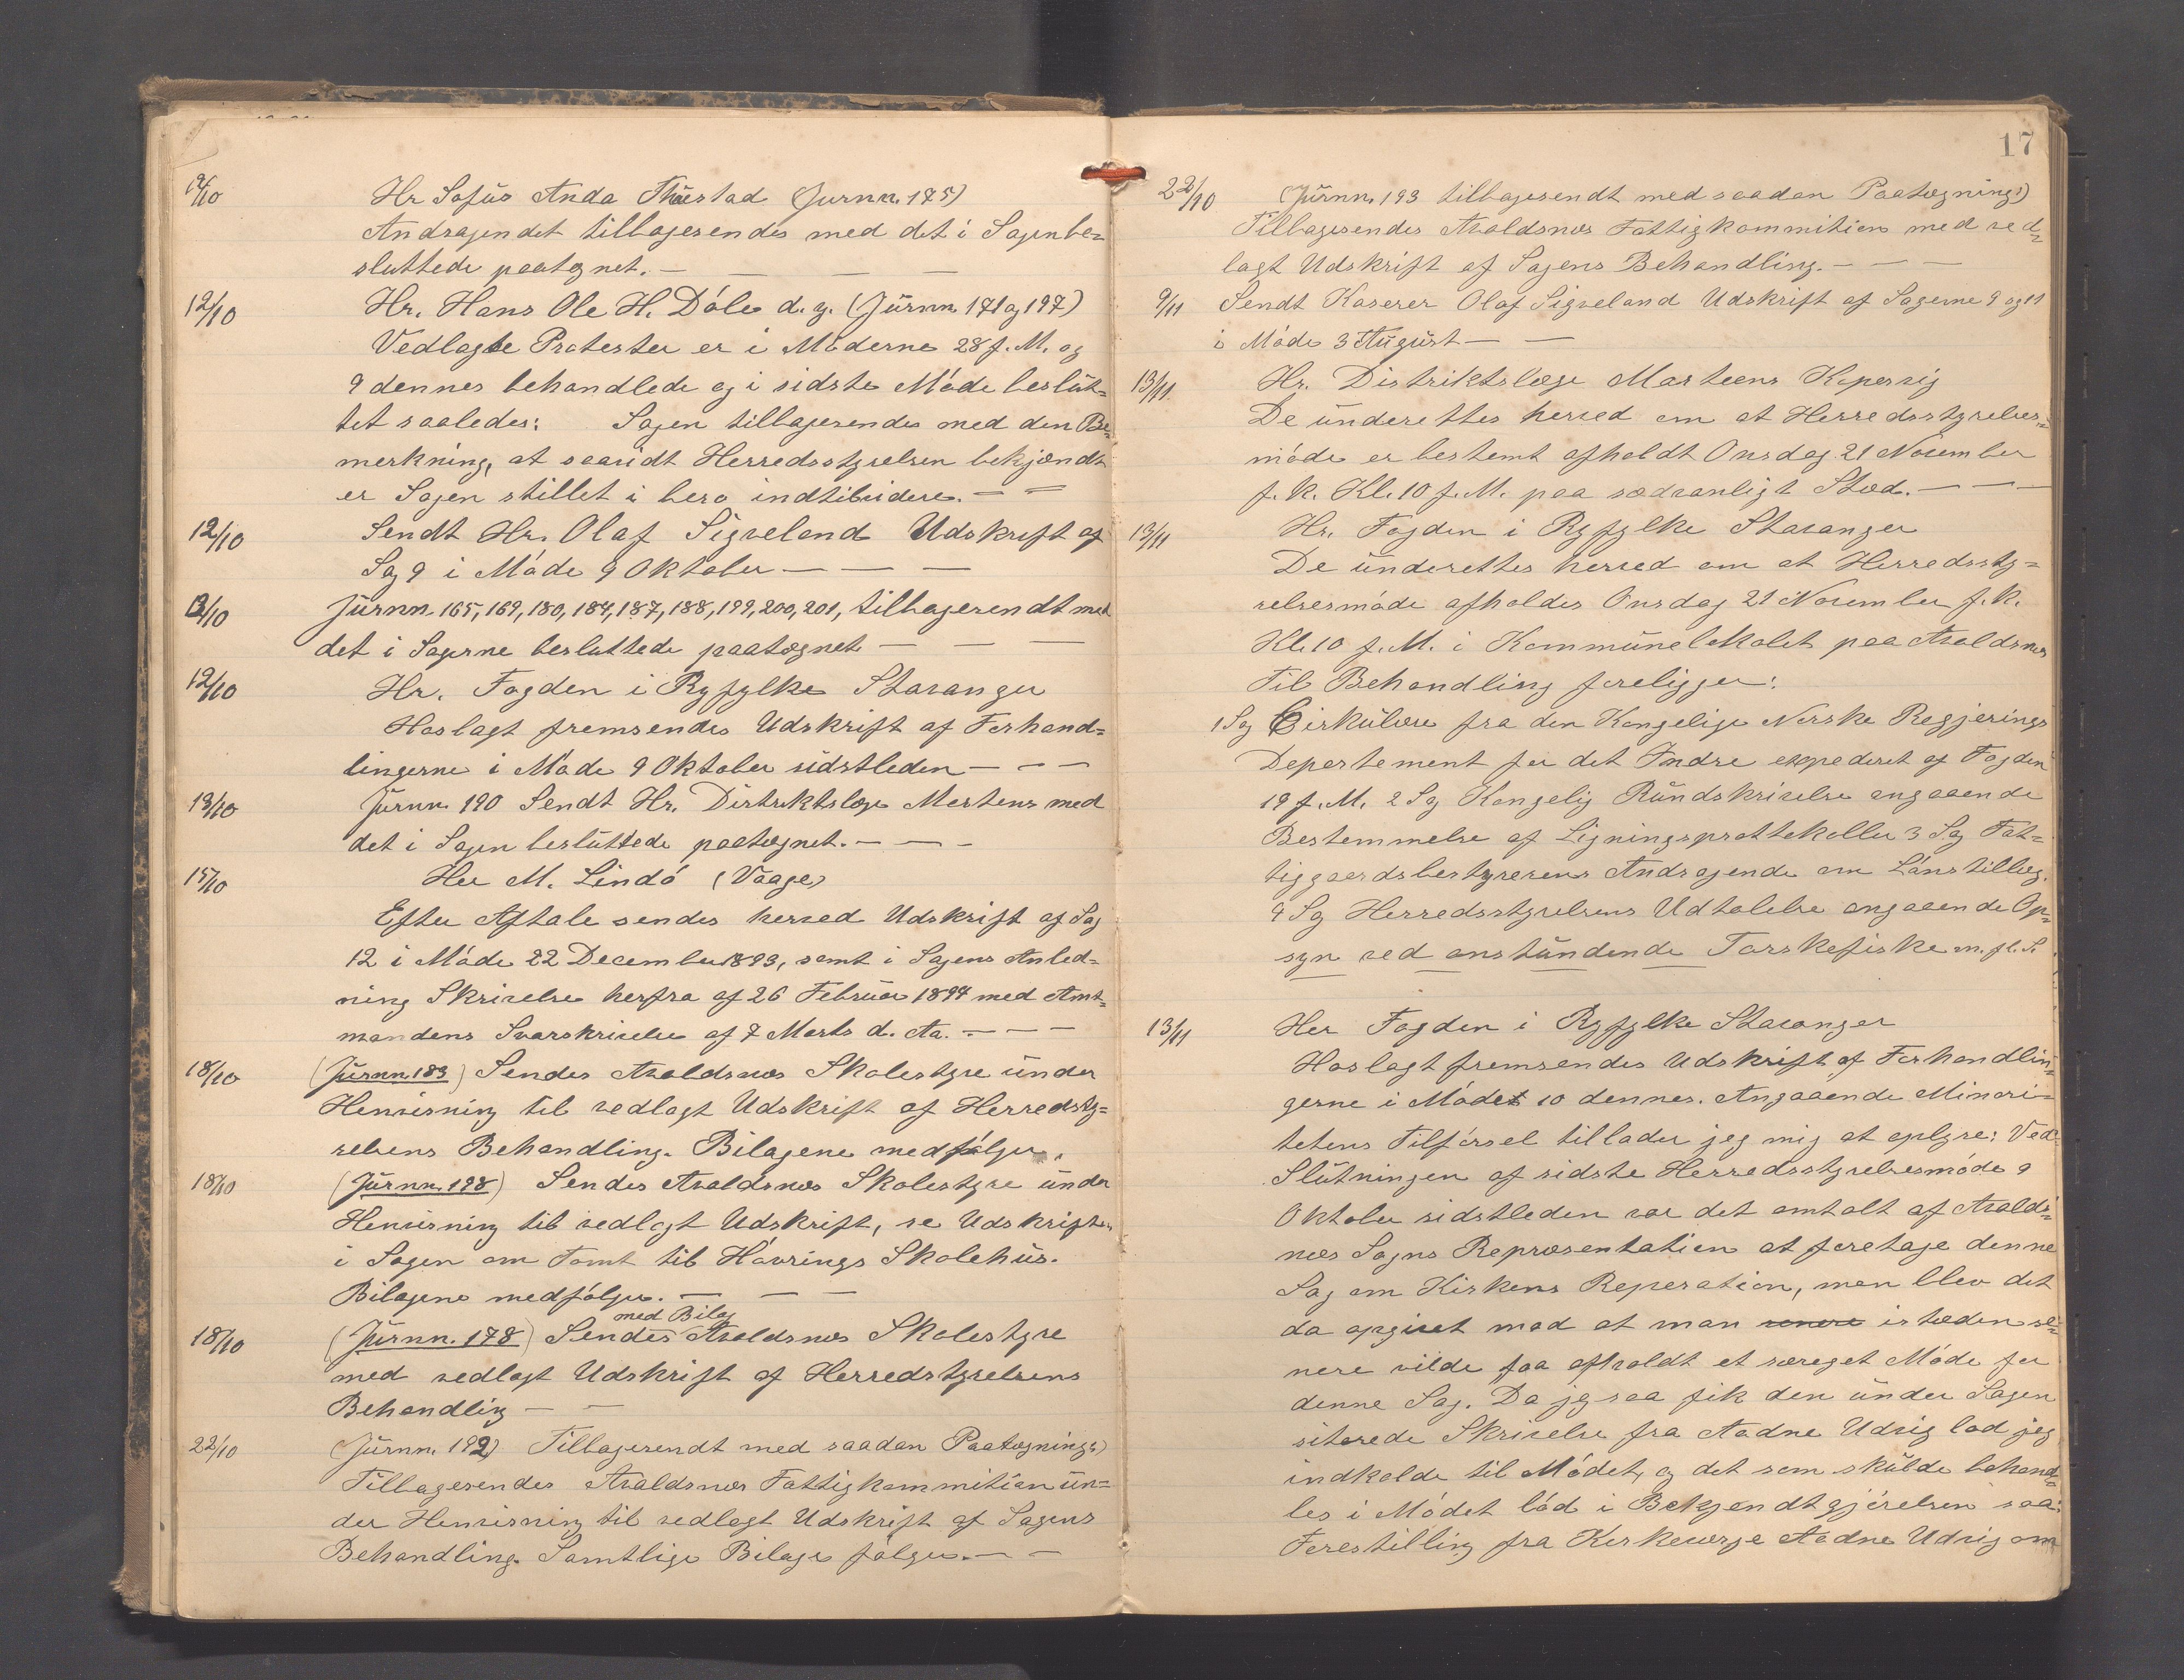 12/10 Hr Sofus Anda (Jurnn. 175)
Andragendet tilbagesendes med det i Sagen be-
sluttede paategnet. — — — —
12/10 Hr. Hans Ole H. Døle d. y. (Jurnn 171 og 197)
Vedlagte Protester er i Møderne 28 f. M. og
9 dennes behandlede og i sidste Møde beslut=
tet saaledes: Sagen tilbagesendes med den Be=
merkning, at saavidt Herredsstyrelsen bekjændt
er Sagen stillet i bero indtilvidere. — —
12/10 Sendt Hr. Olaf Sigveland Udskrift af
Sag 9 i Møde 9 Oktober — — —
12/10 Jurnn. 165, 169, 180, 184, 187, 188, 199, 200, 201, tilbagesendt med
det i Sagerne besluttede paategnet — — —
12/10 Hr. Fogden i Ryfylke Stavanger
Hoslagt fremsendes Udskrift af Forhand=
lingerne i Møde 9 Oktober sidstleden — — —
13/10 Jurnn. 190 Sendt Hr. Distriktslæge Martens med
det i Sagen besluttede paategnet. — — —
15/10 Her M. Lindø (Vaage)
Efter Aftale sendes herved Udskrift af Sag
12 i Møde 22 December 1893, samt i Sagens Anled=
ning Skrivelse herfra af 26 Februar 1894 med Amt=
mandens Svarskrivelse af 7 Marts d. Aa. — — —
18/10 (Jurnn. 183) Sendes Avaldsnes Skolestyre under
Henvisning til vedlagt Udskrift af Herredsty=
relsens Behandling. Bilagene medfølger.
18/10 (Jurnn. 198) Sendes Avaldsnes Skolestyre under
Henvisning til vedlagt Udskrift, se Udskriften
i Sagen om Tomt til Havrings Skolehus.
Bilagene medfølger. — — —
med Bilag
18/10 (Jurnn. 178) Sendes Avaldsnes Skolestyre
med vedlagt Udskrift af Herredstyrelsens
Behandling — —
22/10 (Jurnn. 192) Tilbagesendt med saadan Paategning:)
Tilbagesendes Avaldsnes Fattigkommition un=
der Henvisning til vedlagt Udskrift af Sagens
Behandling. Samtlige Bilage følger. — —
17
22/10 (Jurnn. 193 tilbagesendt med saadan Paategning:)
Tilbagesendes Avaldsnes Fattigkommition med ved=
lagt Udskrift af Sagens Behandling. — — —
9/11 Sendt Kaserer Olaf Sigveland Udskrift af Sagerne 9 og 11
i Møde 3 August — —
13/11 Hr. Distriktslæge Martens Kopervig
De underettes herved om at Herredsstyrelses=
møde er bestemt afholdt Onsdag 21 November
f. k. Kl. 10 f. M. paa sædvanligt Sted. — — —
13/11 Hr. Fogden i Ryfylke Stavanger
De underettes herved om at Herredssty=
relsesmøde afholdes Onsdag 21 November f. k.
Kl. 10 f. M. i Kommunelokalet paa Avaldsnes
Til Behandling foreligger:
1 Sag Cirkulære fra den Kongelige Norske Regjerings
Departement for det Indre expederet af Fogden
19 f. M. 2 Sag Kongelig Rundskrivelse angaaende
Bestemmelse af Ligningsprottokoller 3 Sag Fat=
tiggaardsbestyrerens Andragende om Lønstillæg.
4 Sag Herredsstyrelsens Udtalelse angaaende Op=
syn ved anstundende Torskefiske m. fl. S.
13/11 Her Fogden i Ryfylke Stavanger
Hoslagt fremsendes Udskrift af Forhandlin=
gerne i Mødet 10 dennes. Angaaende Minori=
tetens Tilførsel tillader jeg mig at oplyse: Ved
Slutningen af sidste Herredsstyrelsesmøde 9
Oktober sidstleden var det omtalt af Avalds=
nes Sogns Repræsentation at foretage denne
Sag om Kirkens Reperation, men blev det
da opgivet mod at man senere isteden se=
nere vilde faa afholdt et særeget Møde for
denne Sag. Da jeg saa fik den under Sagen
siterede Skrivelse fra Aadne Udvig lod jeg
indkalde til Mødet, og det som skulde behand=
les i Mødet lød i Bekjendtgjørelsen saa:
Forestilling fra Kirkeværge Aadne Udvig om